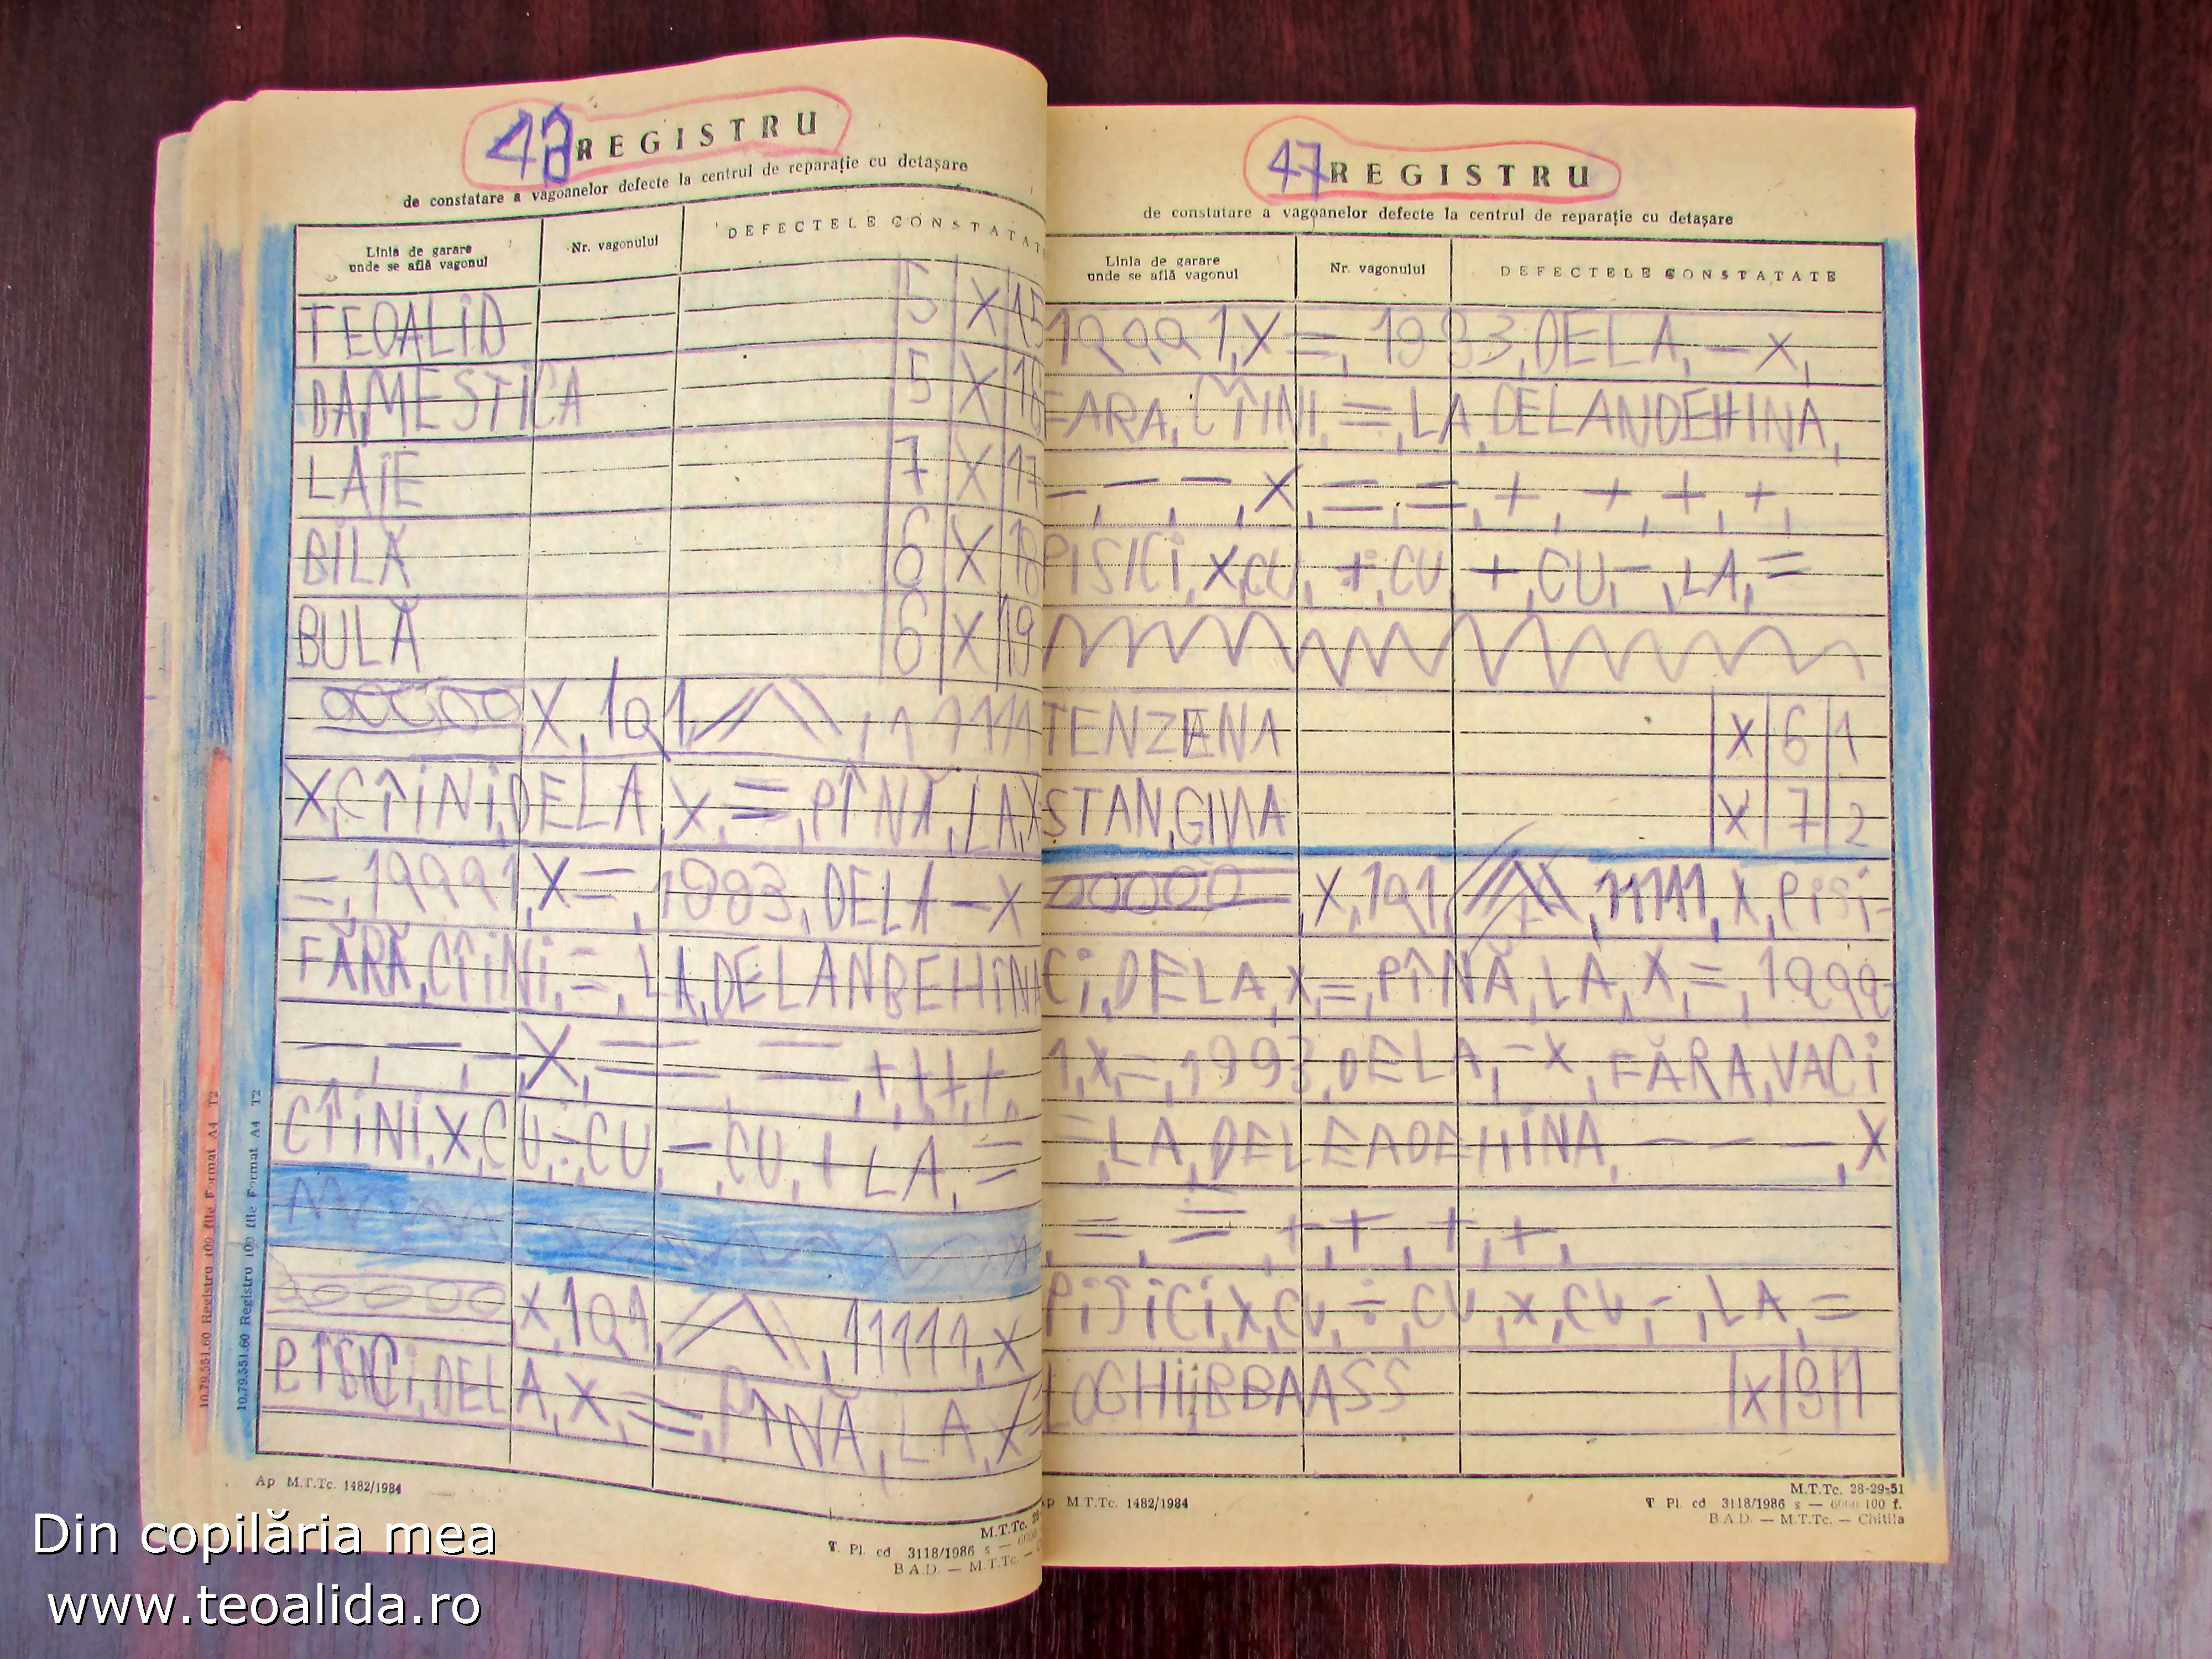 REGISTRU
de constatare a vagoanelor defecte la centrul de reparație cu detașare
Linia de garare unde se află vagonul
Nr. vagonului
DEFECTELE CONSTATAT
TEOALID 5 X 15
DAMESTICA 5 X 16
LAIE 7 X 17
BILĂ 6 X 18
BULĂ 6 X 19
X, 191, 11111
X, CÎINI, DELA, X, =, PÎNĂ, LA, X
=, 19991, X=, 1993, DELA - X
FĂRĂ, CÎINI, =, LA, DELANDEHINA
-, -, -, X, = =, +, +, +, +,
CÎINI, X, CU, ÷, CU, - CU, + LA, =
X, 191, 11111, X
PISICI, DELA, X, =, PÎNĂ, LA, X
Ap M.T.Tc. 1482/1984
M.T.Tc. 28
T. Pl. cd 3118/1986 s —
B.A.D. — M.T.Tc. —
10.79.551.60 Registru 100 file Format A4 T2
10.79.551.60 Registru 100 file Format A4 T2
47 REGISTRU
de constatare a vagoanelor defecte la centrul de reparație cu detașare
Linia de garare unde se află vagonul
Nr. vagonului
DEFECTELE CONSTATATE
19991, X =, 1993, DELA, - X,
FARA, CÎINI, =, LA, DELANDEHINA,
-, -, -, X, =, =, +, +, +, +,
PISICI, X, CU, ÷, CU, +, CU, -, LA, =
TENZENA X 6 1
STANGINA X 7 2
X, 191, 11111, X, PISI-
CI, DELA, X, =, PÎNĂ, LA, X, =, 1999-
1, X, =, 1993, DELA, - X, FĂRA, VACI
=, LA, DELEADEHINA, - - -, X
, =, =, +, +, +, +,
PISICI, X, CU, ÷, CU, X, CU, -, LA, =
LOGHIIBBAASS X 9 1
Ap M.T.Tc. 1482/1984
M.T.Tc. 28-29-51
T Pl. cd 3118/1986 s — 6000 100 f.
B.A.D. — M.T.Tc. — Chitila
Din copilăria mea
www.teoalida.ro